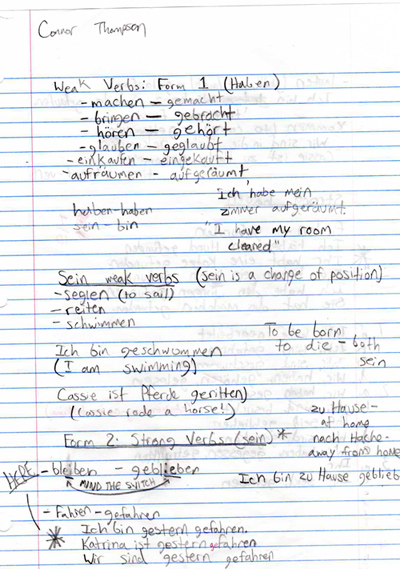 Connor Thompson
Weak Verbs: Form 1 (Haben)
- machen - gemacht
- bringen - gebracht
- hören - gehört
- glauben - geglaubt
- einkaufen - eingekauft
- aufräumen - aufgeräumt
Ich habe mein
zimmer aufgeräumt.
"I have my room
cleaned"
haben - haben
sein - bin
Sein weak verbs (sein is a change of position)
- seglen (to sail)
- reiten
- schwimmen
To be born
to die - both
sein
Ich bin geschwommen
(I am swimming)
Cassie ist Pferde geritten)
(Cassie rode a horse!)
zu Hause -
at home
nach Hache -
away from home
Form 2: Strong Verbs (sein) *
HERE - bleiben - geblieben
MIND THE SWITCH
Ich bin zu Hause geblieb
- Fahren - gefahren
* Ich bin gestern gefahren.
Katrina ist gestern gefahren
Wir sind gestern gefahren